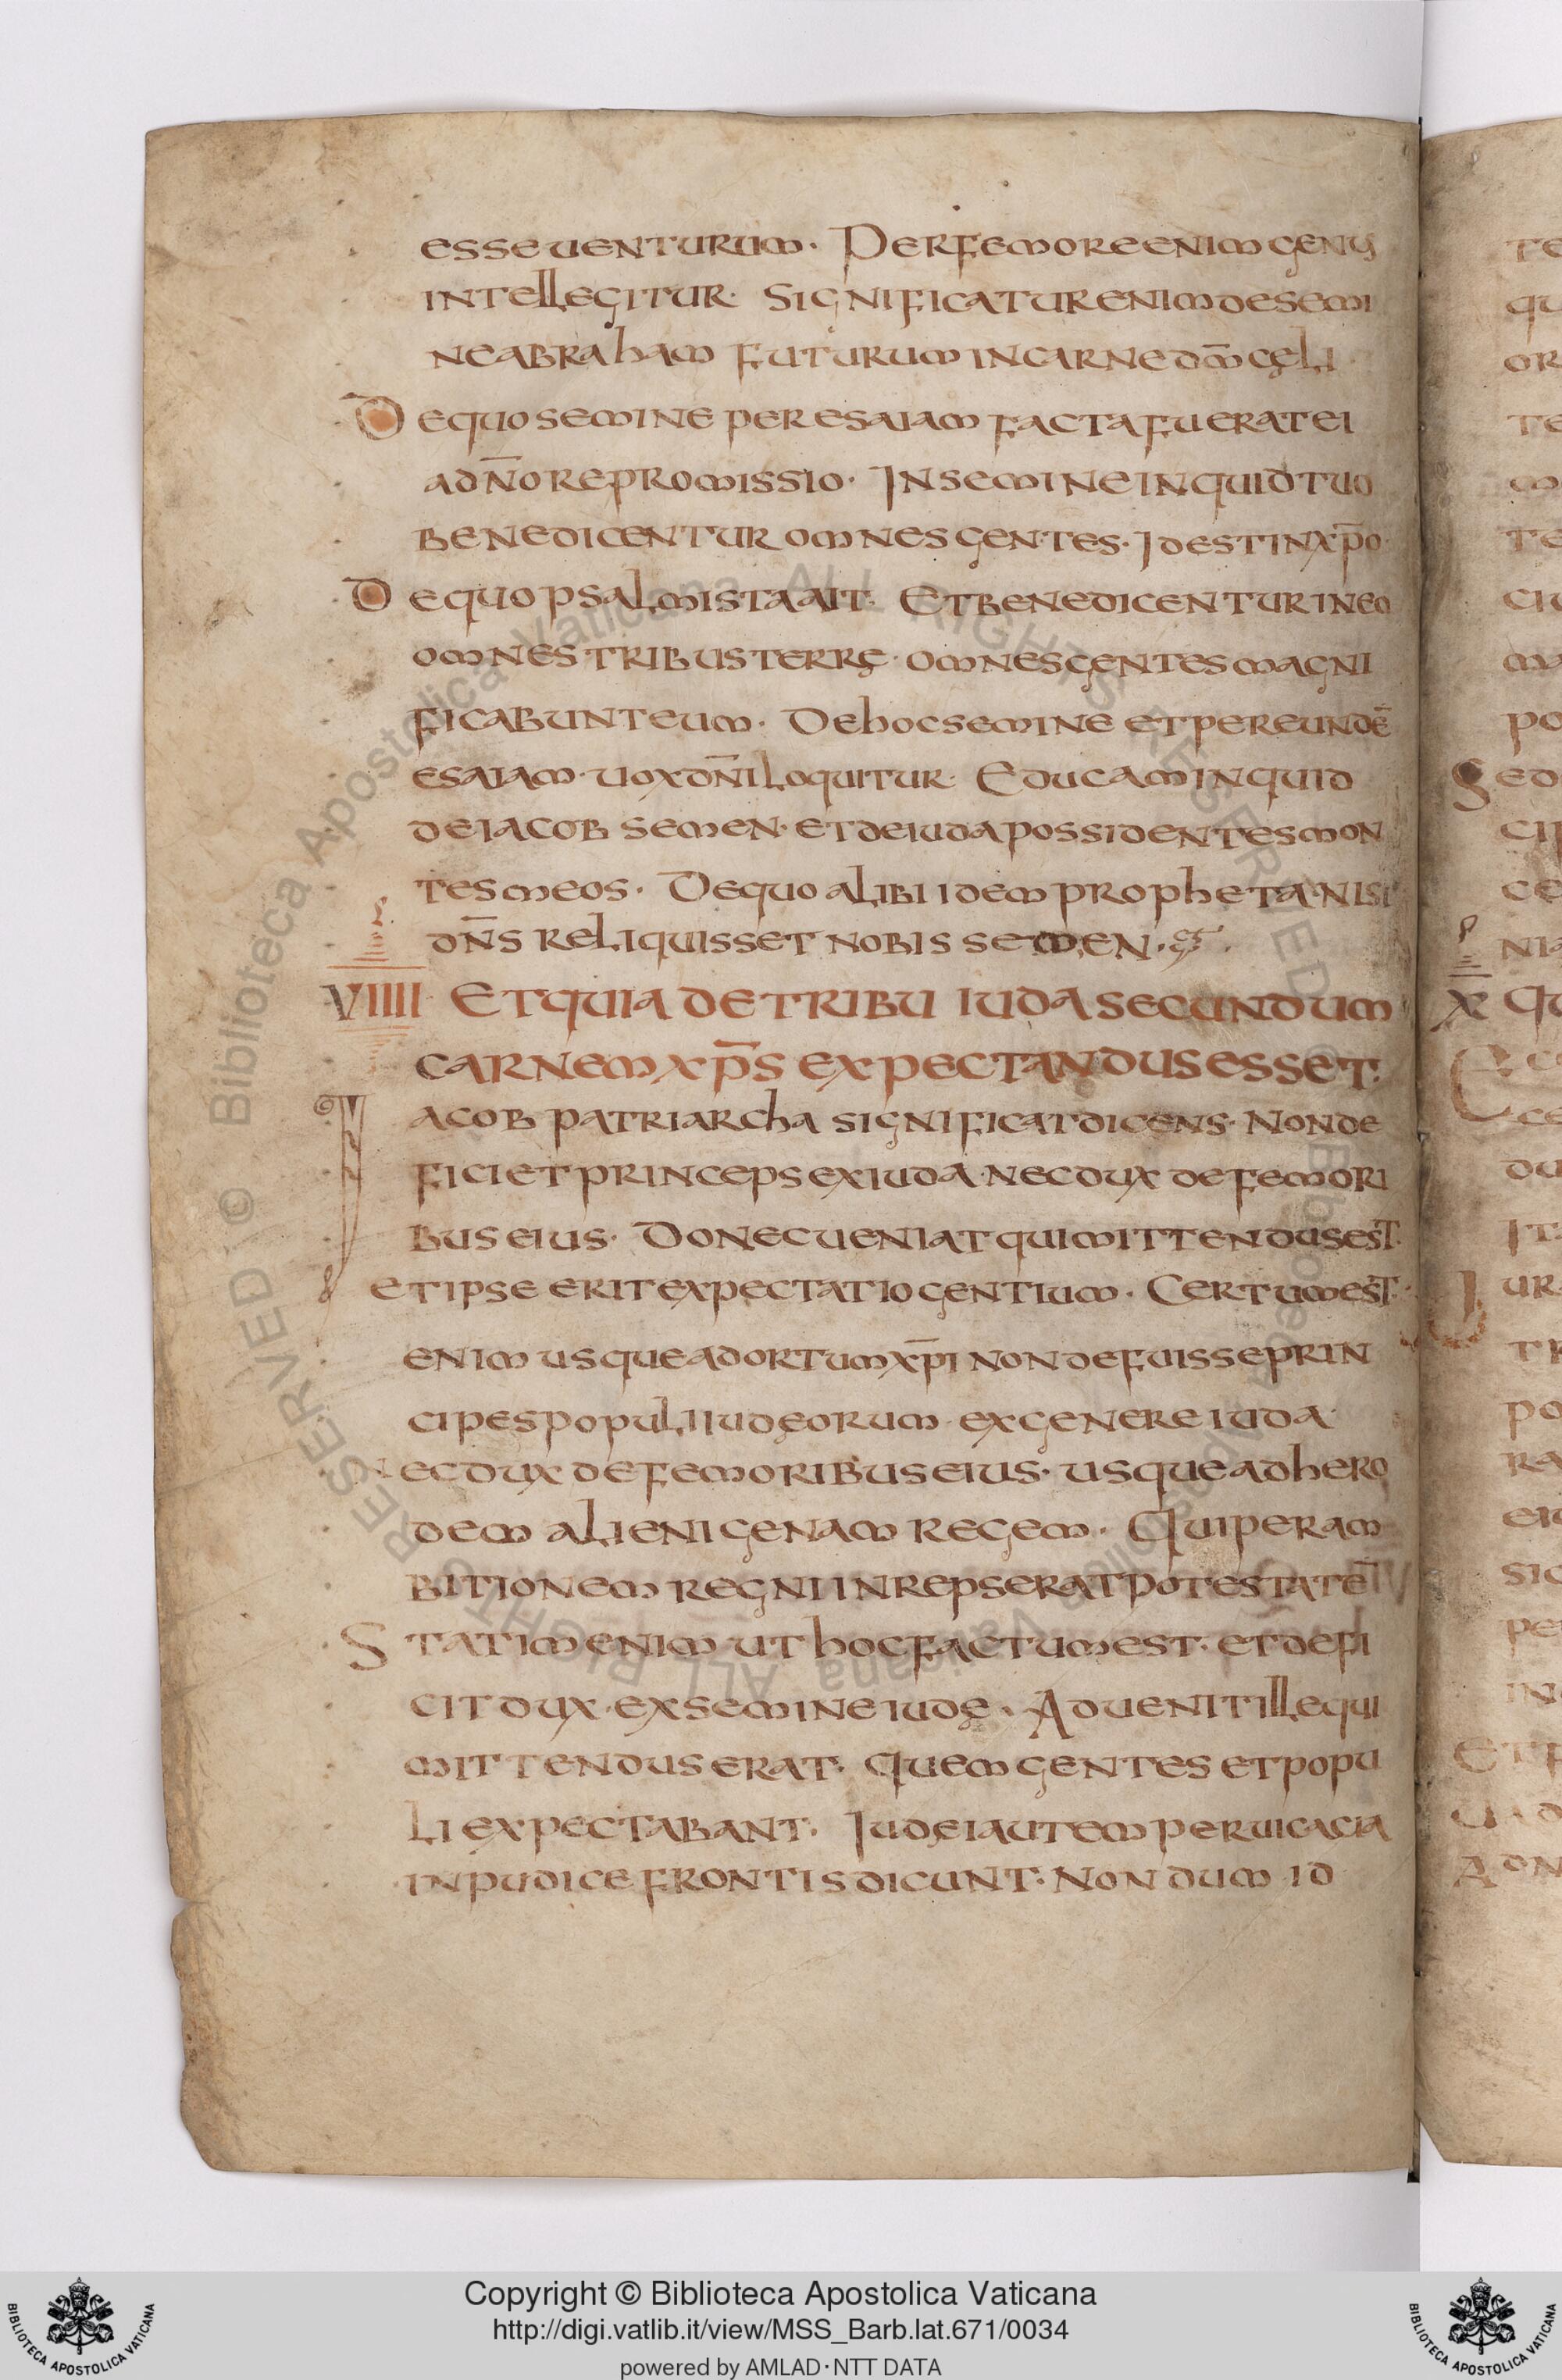 esse uenturum · Per femore enim genus
intellegitur · Significatur enim de semi
ne abraham futurum in carne dm̄ cęli ·
De quo semine per esaiam facta fuerat ei
a dn̄o repromissio · In semine inquid tuo
benedicentur omnes gentes · Id est in xp̄o ·
De quo psalmista ait · Et benedicentur in eo
omnes tribus terrę · omnes gentes magni
ficabunt eum · De hoc semine et per eundē
esaiam · uox dn̄i loquitur · Educam inquid
de iacob semen · et de iuda possidentes mon
tes meos · De quo alibi idem propheta · nisi
dn̄s reliquisset nobis semen ·
VIIII Et quia de tribu iuda secundum
carnem xp̄s expectandus esset ·
Iacob patriarcha significat dicens · Non de
ficiet princeps ex iuda · nec dux de femori
bus eius · Donec ueniat qui mittendus est ·
et ipse erit expectatio gentium · Certum est ·
enim usque ad ortum xp̄i non defuisse prin
cipes populi iudęorum · ex genere iuda ·
Nec dux de femoribus eius · usque ad hero
dem alienigenam regem · Qui per am
bitionem regni inrepserat potestatē
Statim enim ut hoc factum est · et defi
cit dux · ex semine iudę · Aduenit ille qui
mittendus erat · quem gentes et popu
li expectabant · Iudęi autem peruicacia
inpudice frontis dicunt · Non dum id
Copyright © Biblioteca Apostolica Vaticana
http://digi.vatlib.it/view/MSS_Barb.lat.671/0034
powered by AMLAD·NTT DATA